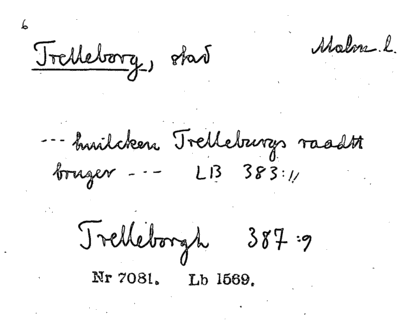 6
Trelleborg, stad Malm. l.
--- huilcken Trelleburgs raadtt
bruger --- LB 383:11
Trelleborgh 387:9
Nr 7081. Lb 1569.